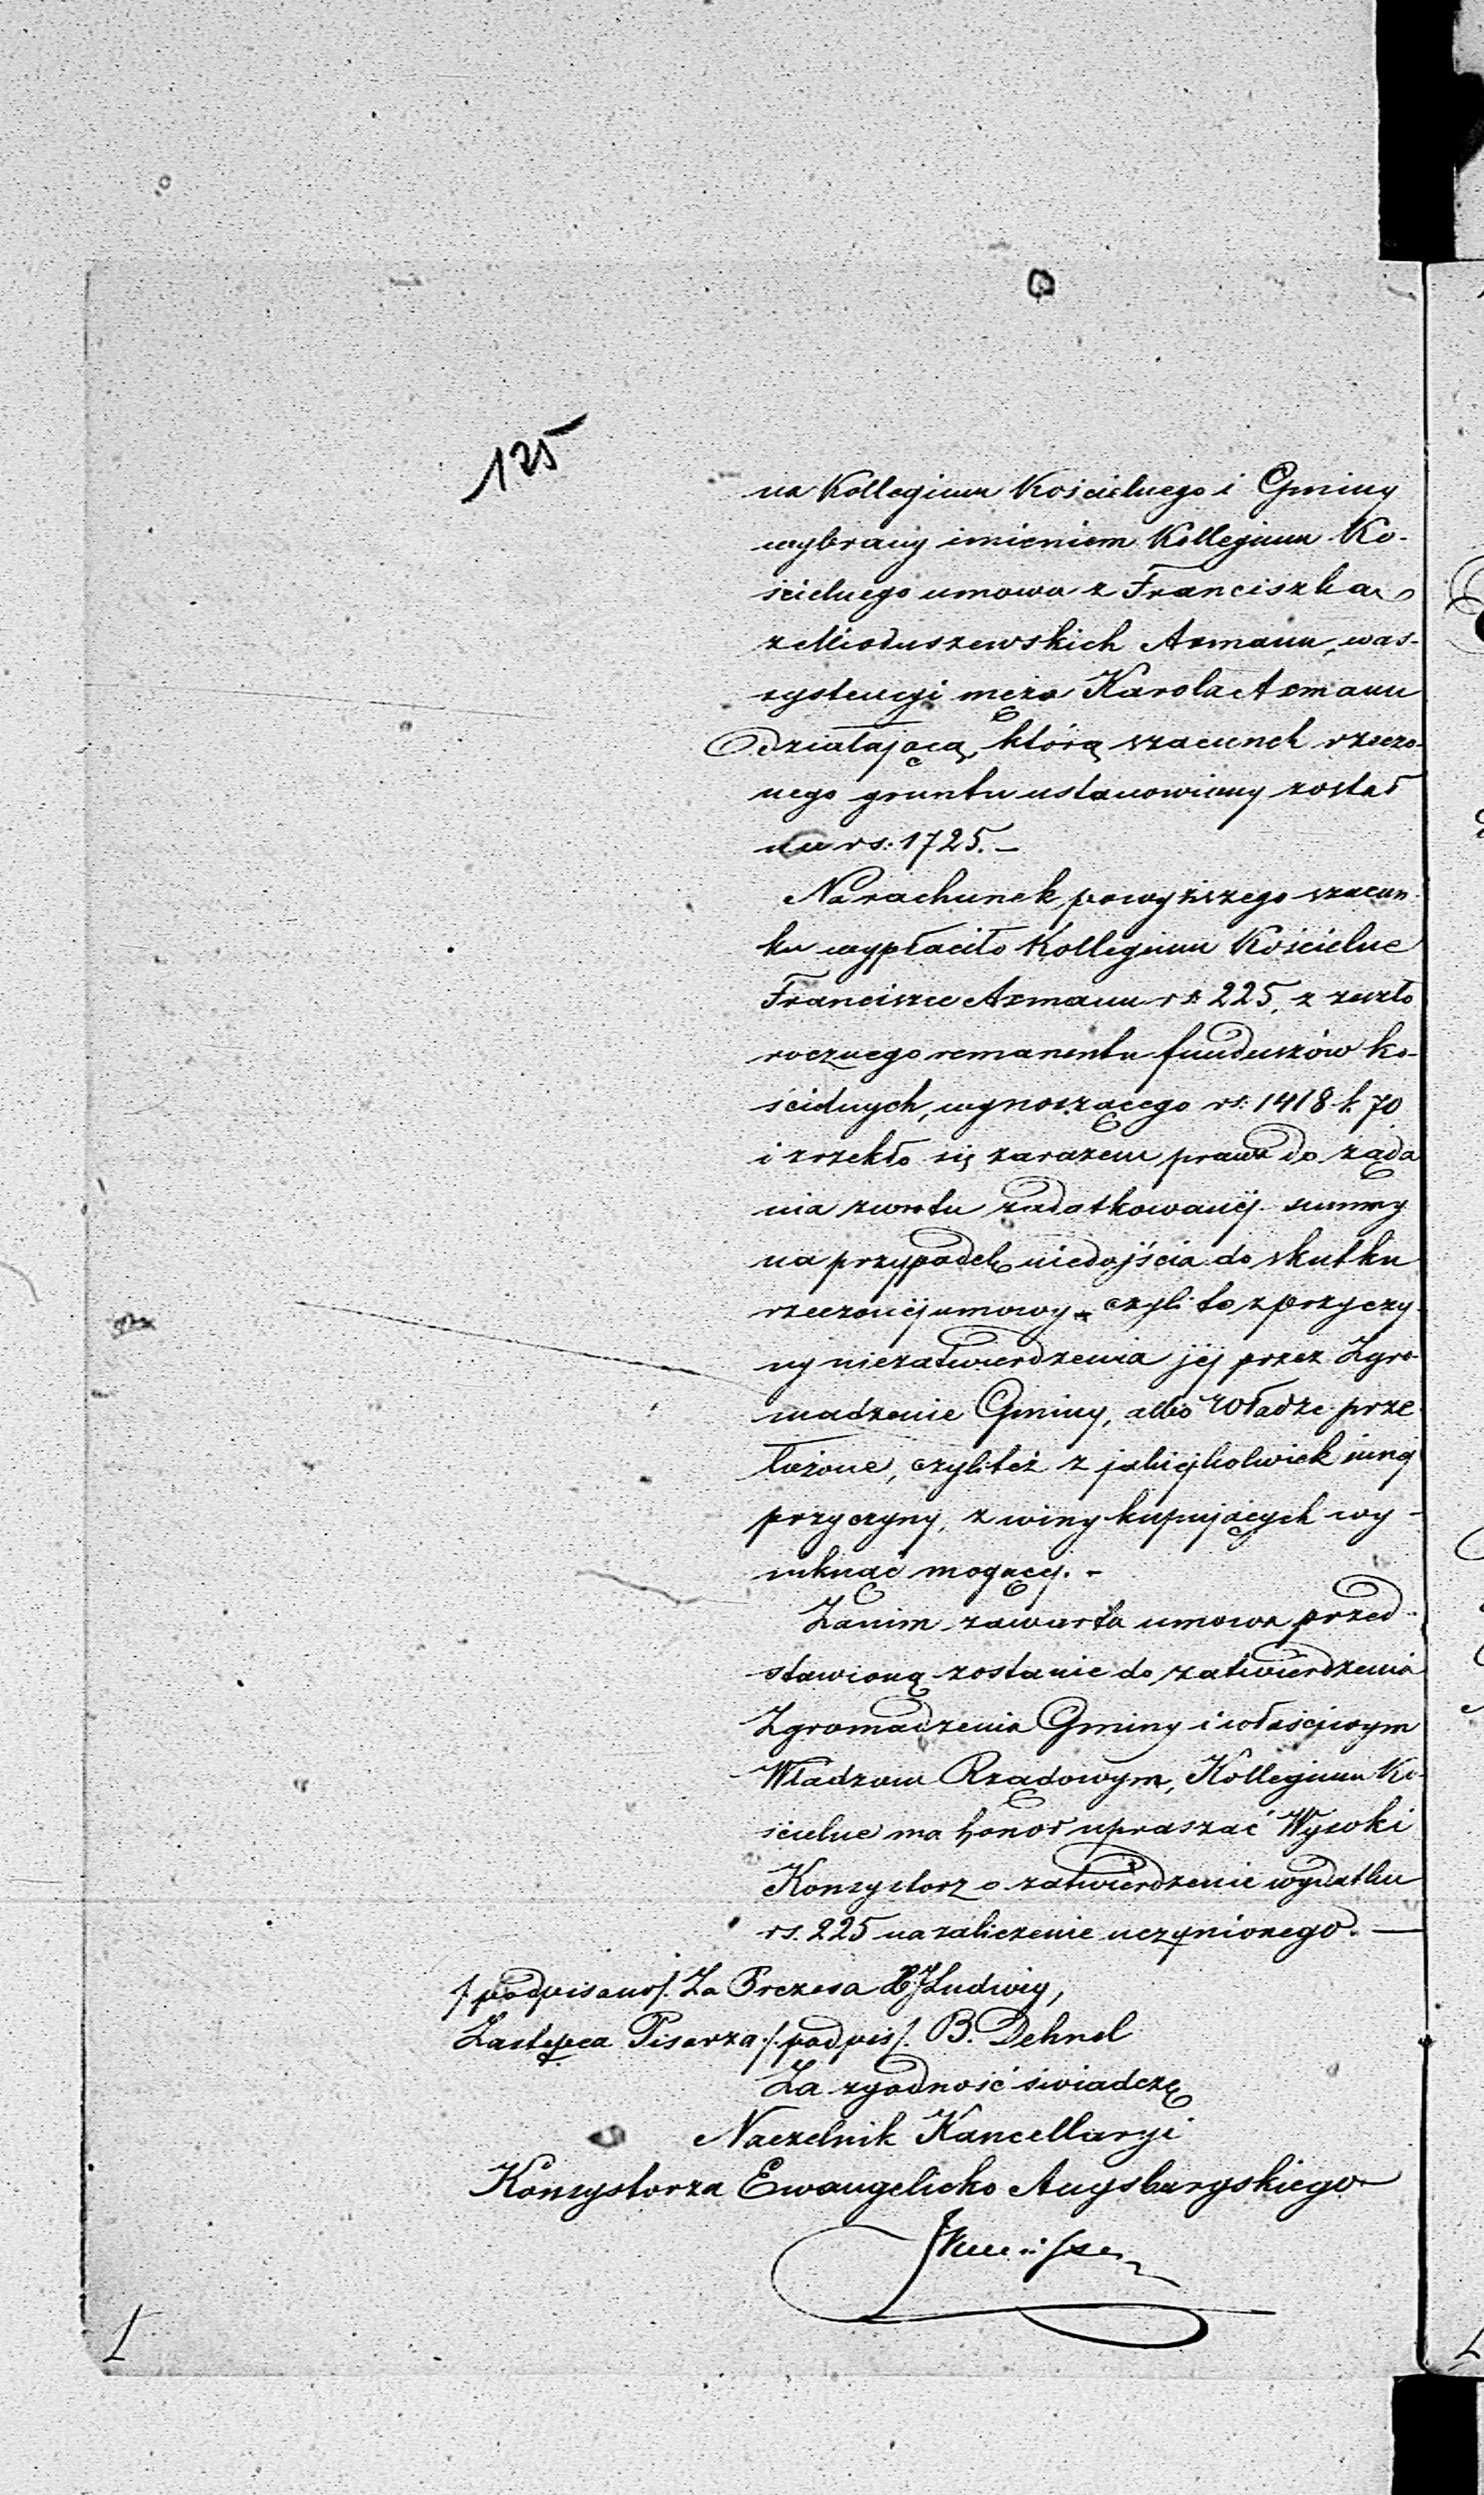 125
na Kollegium Kościelnego i Gminy
wybrany imieniem Kollegium Ko-
ścielnego umowa z Franciszką
z Mioduszewskich Axmann, w as-
systencyi męża Karola Axmann
działającą, którą szacunek rzeczo-
nego gruntu ustanowiony został
na rs. 1725. -
Na rachunek powyższego szacun-
ku wypłaciło Kollegium Kościelne
Franciszce Axmann rs 225, z zeszło
rocznego remanentu funduszów ko-
ścielnych, wynoszącego rs. 1418 k. 70
i zrzekło się zarazem prawa do żąda
nia zwrotu zadatkowanéj summy
na przypadek niedojścia do skutku
rzeczonéj umowy czyli to z przyczy-
ny niezatwierdzenia jéj przez Zgro-
madzenie Gminy, albo Władze prze-
łożone, czyli też z jakiéjkolwiek innéj
przyczyny, z winy kupujących wy-
niknąć mogącéj. -
Zanim zawarta umowa przed-
stawioną zostanie do zatwierdzenia
Zgromadzenia Gminy i właściwym
Władzom Rządowym, Kollegium Ko-
ścielne ma honor upraszać Wysoki
Konsystorz o zatwierdzenie wydatku
rs. 225 na zaliczenie uczynionego. —
/podpisano/. Za Prezesa Ludwig,
Zastępca Pisarza /podpis/. B. Dehnel
Za zgodność świadczę
Naczelnik Kancellaryi
Konsystorza Ewangelicko Augsburgskiego